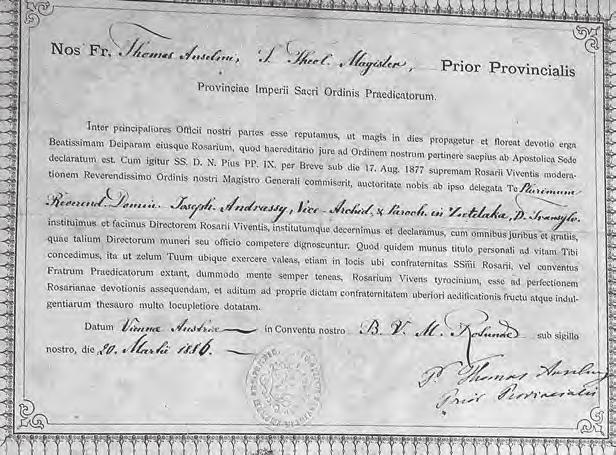 Nos Fr. Thomas Anselmi, S. Theol. Magister, Prior Provincialis
Provinciae Imperii Sacri Ordinis Praedicatorum.
Inter principaliores Officii nostri partes esse reputamus, ut magis in dies propagetur et floreat devotio erga
Beatissimam Deiparam eiusque Rosarium, quod haereditario jure ad Ordinem nostrum pertinere saepius ab Apostolica Sede
declaratum est. Cum igitur SS. D. N. Pius PP. IX. per Breve sub die 17. Aug. 1877 supremam Rosarii Viventis modera-
tionem Reverendissimo Ordinis nostri Magistro Generali commiserit, auctoritate nobis ab ipso delegata Te Plurimum
Reverend. Domin. Joseph. Andrassy, Vice-Archid. & Paroch. in Zetelaka, D. Transylv.
instituimus et facimus Directorem Rosarii Viventis, institutumque decernimus et declaramus, cum omnibus juribus et gratiis,
quae talium Directorum muneri seu officio competere dignoscuntur. Quod quidem munus titulo personali ad vitam Tibi
concedimus, ita ut zelum Tuum ubique exercere valeas, etiam in locis ubi confraternitas SSmi Rosarii, vel conventus
Fratrum Praedicatorum extant, dummodo mente semper teneas, Rosarium Vivens tyrocinium, esse ad perfectionem
Rosarianae devotionis assequendam, et aditum ad proprie dictam confraternitatem uberiori aedificationis fructu atque indul-
gentiarum thesauro multo locupletiore dotatam.
Datum Viennae Austriae in Conventu nostro B. V. M. Rotundae sub sigillo
nostro, die 20. Martii 1886.
Fr. Thomas Anselmi
Prior Provincialis